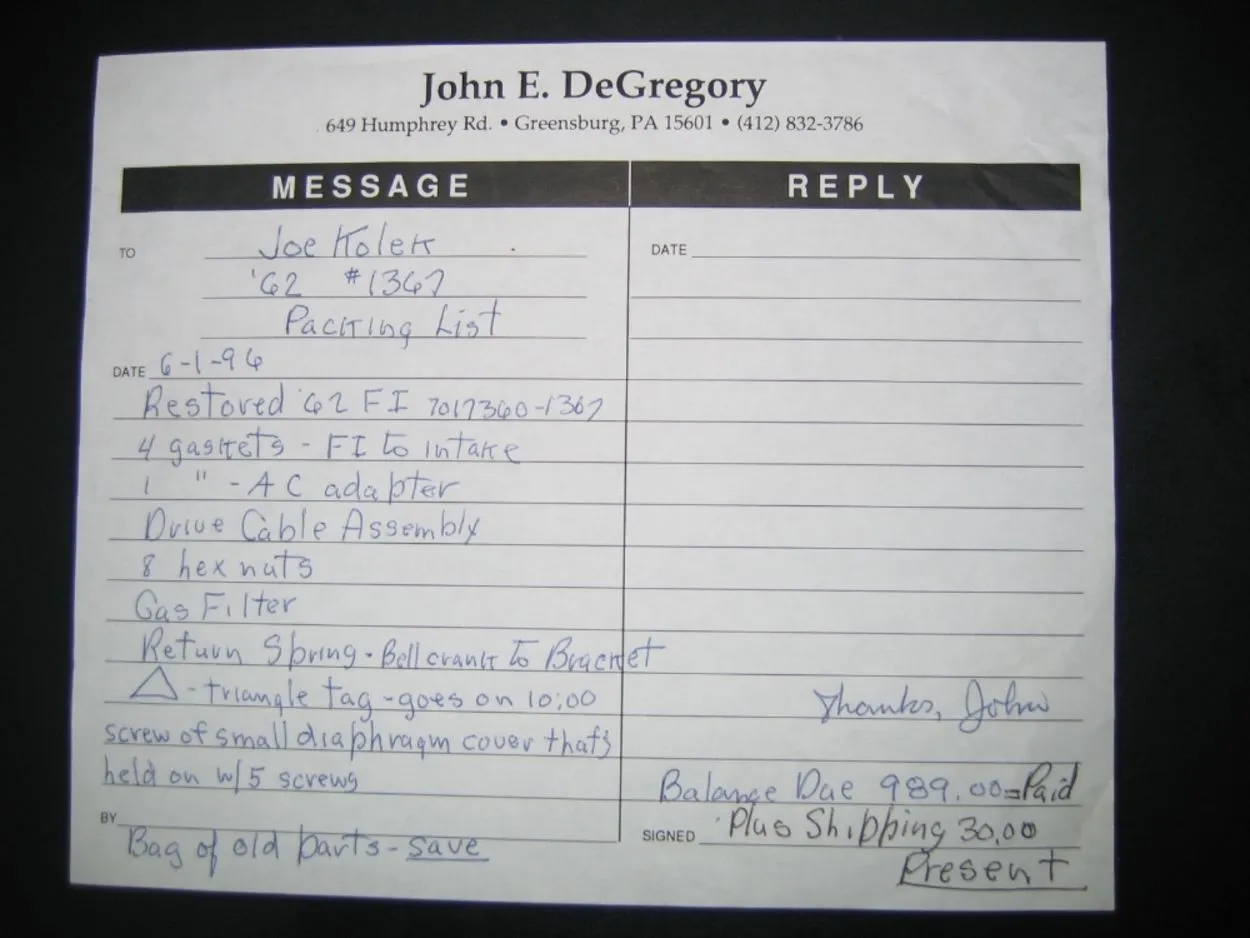 John E. DeGregory
649 Humphrey Rd. • Greensburg, PA 15601 • (412) 832-3786
MESSAGE
TO Joe Kolek
'62 #1367
Packing List
DATE 6-1-96
Restored '62 FI 7017360-1367
4 gaskets - FI to intake
1 " - AC adapter
Drive Cable Assembly
8 hex nuts
Gas Filter
Return Spring - Bellcrank to Bracket
△ - triangle tag - goes on 10:00
screw of small diaphragm cover that's
held on w/5 screws
BY
Bag of old parts - save
REPLY
DATE
Thanks, John
Balance Due 989.00=Paid
SIGNED Plus Shipping 30.00
Present